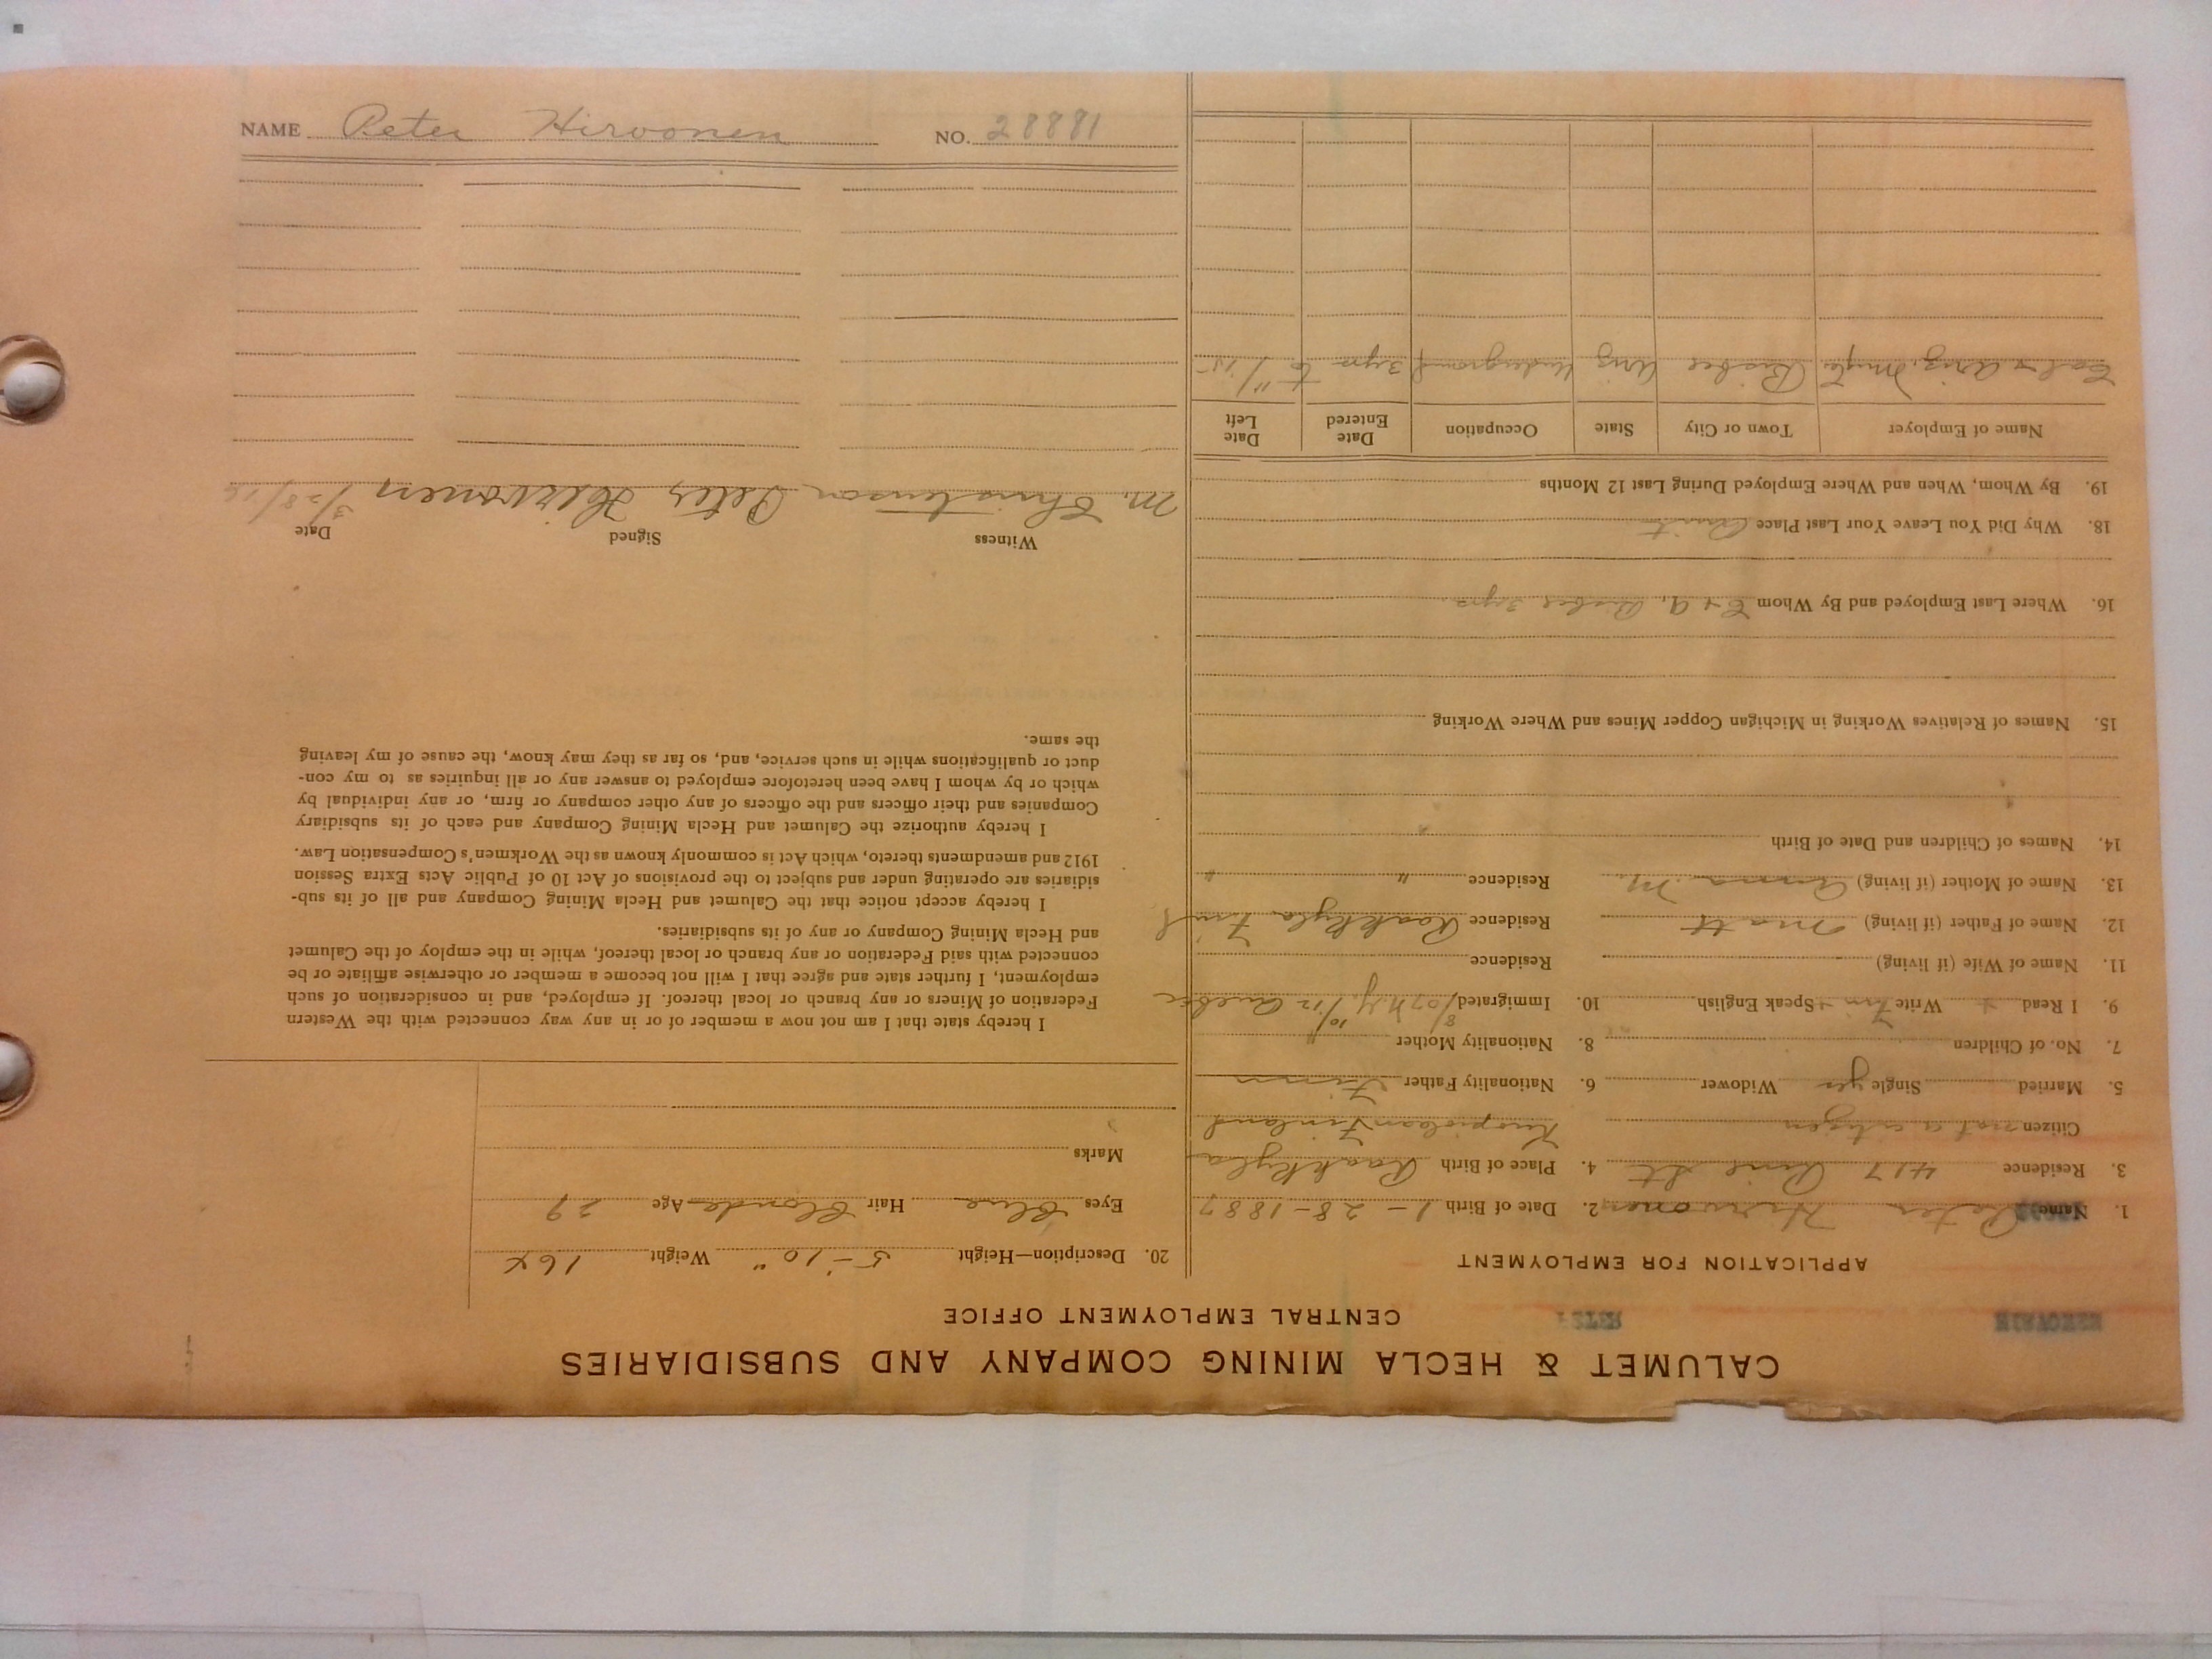 CALUMET & HECLA MINING COMPANY AND SUBSIDIARIES
CENTRAL EMPLOYMENT OFFICE
HIRVONEN PETER
APPLICATION FOR EMPLOYMENT
1. Name Peter Hirvonen 2. Date of Birth 1-28-1887
3. Residence 417 Pine St 4. Place of Birth Raakkyla
Citizen not a citizen Kuopiolaan Finland
5. Married Single yes Widower 6. Nationality Father Finn
7. No. of Children 8. Nationality Mother "
9. I Read + Write Finn + Speak English 10. Immigrated 8/07 N.Y. 10/12 Quebec
11. Name of Wife (if living) Residence
12. Name of Father (if living) Matt Residence Raakkyla Finl
13. Name of Mother (if living) Anna M. Residence " "
14. Names of Children and Date of Birth
15. Names of Relatives Working in Michigan Copper Mines and Where Working
16. Where Last Employed and By Whom C + A, Bisbee 3 yrs.
18. Why Did You Leave Your Last Place Quit
19. By Whom, When and Where Employed During Last 12 Months
Name of Employer Town or City State Occupation Date Entered Date Left
Cal + Ariz. Bisbee Ariz Underground 3 yrs to 11/15
20. Description—Height 5-10" Weight 164
Eyes Blue Hair Blonde Age 29
Marks
I hereby state that I am not now a member of or in any way connected with the Western
Federation of Miners or any branch or local thereof. If employed, and in consideration of such
employment, I further state and agree that I will not become a member or otherwise affiliate or be
connected with said Federation or any branch or local thereof, while in the employ of the Calumet
and Hecla Mining Company or any of its subsidiaries.
I hereby accept notice that the Calumet and Hecla Mining Company and all of its sub-
sidiaries are operating under and subject to the provisions of Act 10 of Public Acts Extra Session
1912 and amendments thereto, which Act is commonly known as the Workmen's Compensation Law.
I hereby authorize the Calumet and Hecla Mining Company and each of its subsidiary
Companies and their officers and the officers of any other company or firm, or any individual by
which or by whom I have been heretofore employed to answer any or all inquiries as to my con-
duct or qualifications while in such service, and, so far as they may know, the cause of my leaving
the same.
Witness Signed Date
M. Christenson Peter Hirvonen 3/28/16
NAME Peter Hirvonen NO. 28881